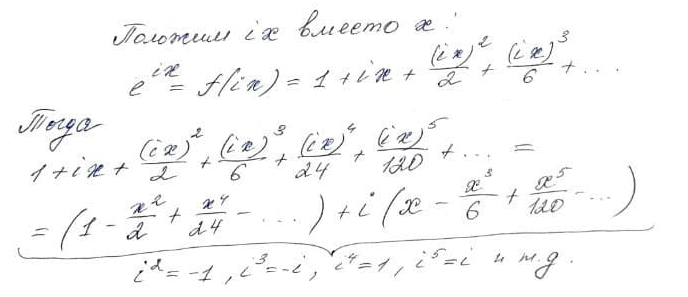 Положим ix вместо x:
e^{ix} = f(ix) = 1 + ix + (ix)^2/2 + (ix)^3/6 + ...
Тогда
1 + ix + (ix)^2/2 + (ix)^3/6 + (ix)^4/24 + (ix)^5/120 + ... =
= (1 - x^2/2 + x^4/24 - ...) + i (x - x^3/6 + x^5/120 - ...)
i^2 = -1, i^3 = -i, i^4 = 1, i^5 = i и т.д.